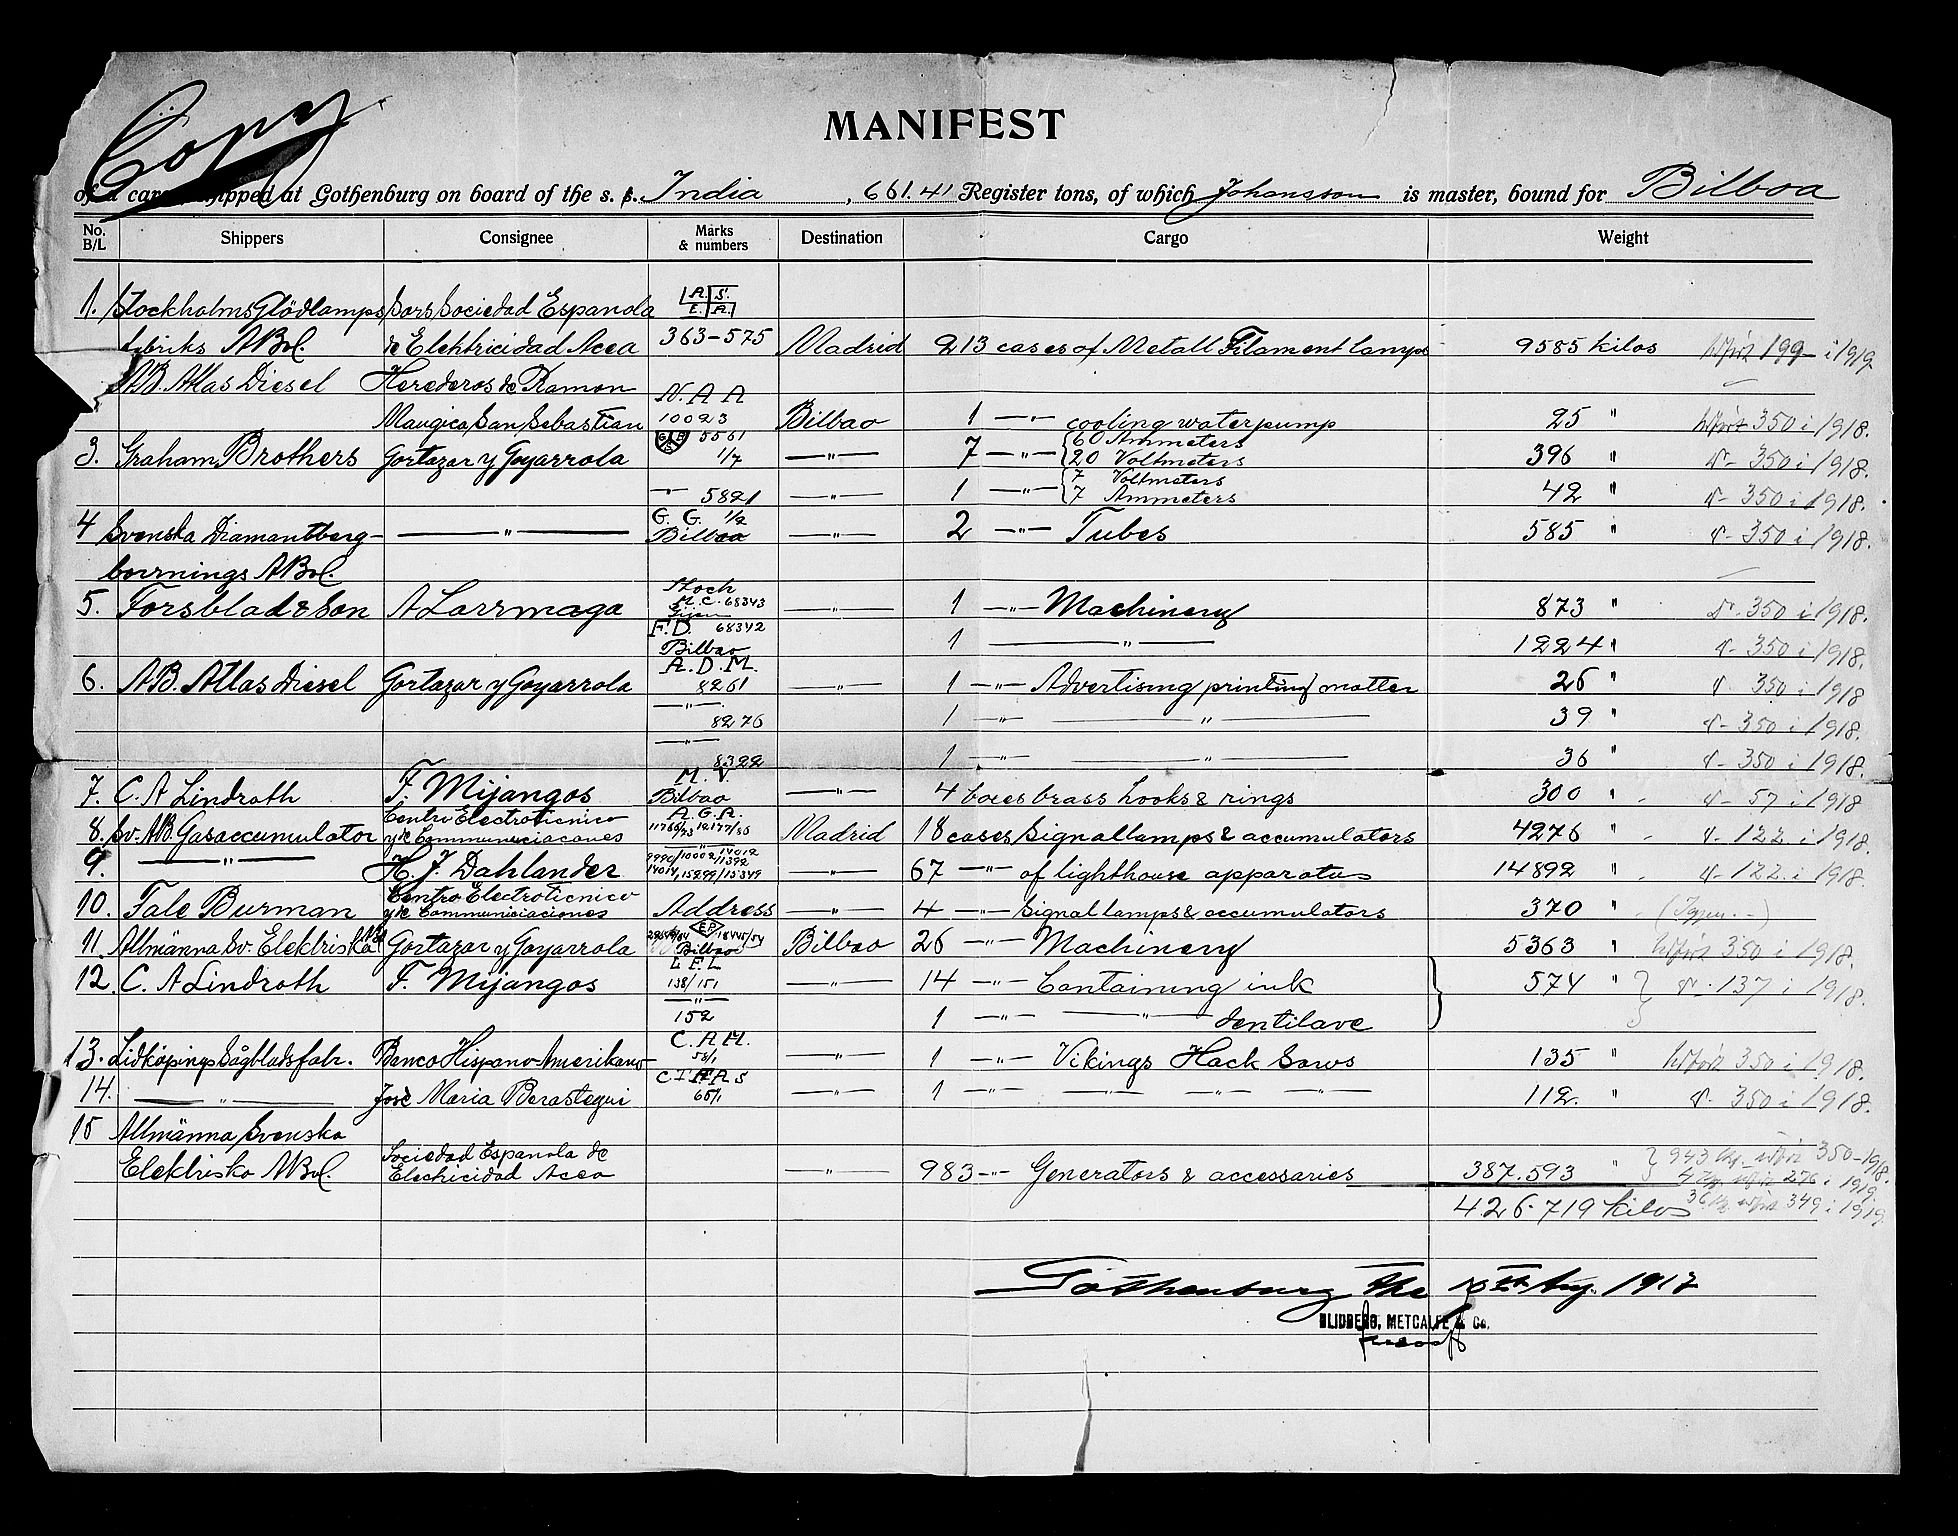 Copy
MANIFEST
of a cargo shipped at Gothenburg on board of the s. s. India, 661.41 Register tons, of which Johansson is master, bound for Bilboa
No. B/L Shippers Consignee Marks & numbers Destination Cargo Weight
1. Stockholms Glödlamps Sors Sociedad Espanola A. S. E. A.
fabriks ABol. de Elektricidad Acea 363-575 Madrid 213 cases of Metall Filament lamps 9585 kilos infört 199 i 1919.
AB. Atlas Diesel Herederos de Ramon N. A A
Maugica San Sebastian 10023 Bilbao 1 —"— cooling waterpump 25 " infört 350 i 1918.
3. Graham Brothers Gortazar y Goyarrola 5561 1/7 —"— 7 —"— {60 Ammeters 20 Voltmeters 396 " d- 350 i 1918.
—"— 5821 —"— 1 —"— {7 Voltmeters 7 Ammeters 42 " d- 350 i 1918.
4 Svenska Diamantberg- —"— G. G. 1/2 Bilbao —"— 2 —"— Tubes 585 " d- 350 i 1918.
borrnings ABol.
5. Forsblad & Son A Larrmaga Stoch M. C. 68343 Gijon —"— 1 —"— Machinery 873 " d- 350 i 1918.
F. D. 68342 Bilbao 1 —"— 1224 " d- 350 i 1918.
6. AB. Atlas Diesel Gortazar y Goyarrola A. D. M. 8261 —"— 1 —"— Advertising printing matter 26 " d- 350 i 1918
—"— 8276 1 —"— —"— 39 " d- 350 i 1918.
—"— 8322 1 —"— —"— 36 " d- 350 i 1918.
7. C. A Lindroth F. Mijangos M. V. Bilbao —"— 4 boxes brass hooks & rings 300 " d- 57 i 1918
8. Sv. AB. Gasaccumulator Centro Electroticnico y de Communiciacones A. G. A. 11766/73 12177/86 Madrid 18 cases Signallamps & accumulators 4276 " d- 122 i 1918.
9. —"— H. J. Dahlander —"— 67 —"— of lighthouse apparatus 14892 " d- 122 i 1918.
10. Tale Burman Centro Electroticnico y de Communiciaciones Address —"— 4 —"— Signal lamps & accumulators 370 "
11. Allmänna Sv. Elektriska Gortazar y Goyarrola 18445/54 Bilbao Bilbao 26 —"— Machinery 5363 " infört 350 i 1918.
12. C. A Lindroth F. Mijangos L F. L 138/151 —"— 14 —"— Containing ink 574 " d- 137 i 1918.
—"— 152 1 —"— —"— dentilave
13. Lidköpings Sågbladsfabr. Banco Hispano Amerikano C. A. M. 56/1 1 —"— Vikings Hack Saws 135 " infört 350 i 1918.
14. —"— José Maria Berastegui 65/1 —"— 1 —"— —"— —"— 112. " d- 350 i 1918.
15 Allmänna Svenska
Elektriska ABol. Sociedad Espanola de Electricidad Acea —"— 983 —"— Generators & accessaries 387.593 " 943 kg infört 350-1918.
4 infört 276 i 1919.
426.719 kilos 36 infört 349 i 1919.
Gothenburg the 15th Aug. 1917
BLIDBERG, METCALFE & Co.